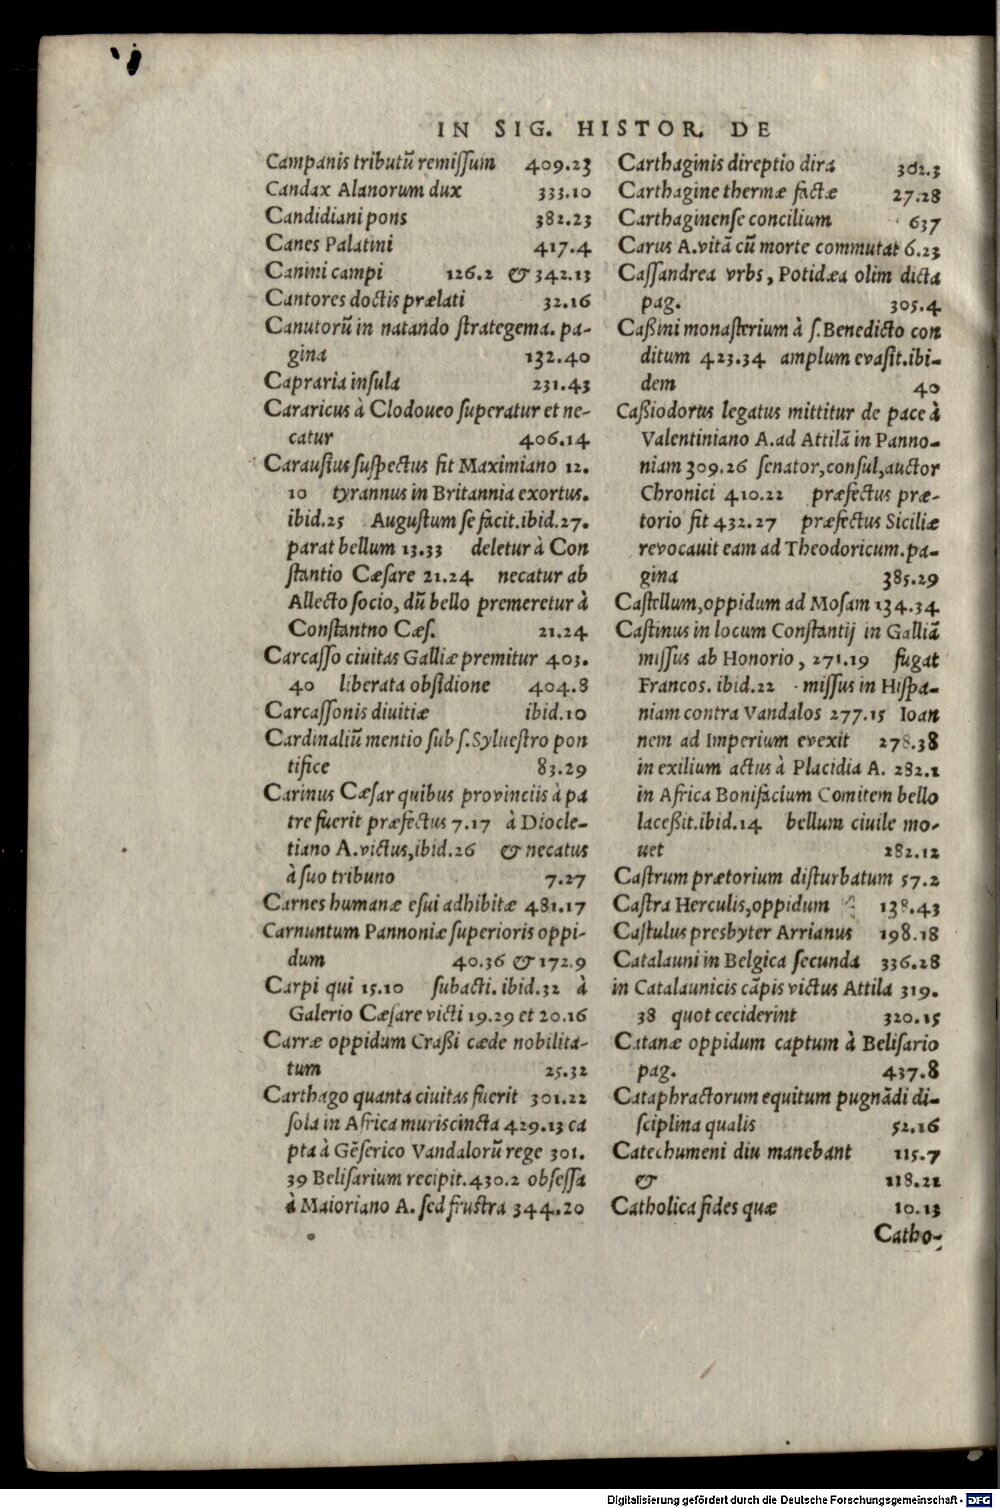 IN SIG. HISTOR. DE
Campanis tributũ remiſſum 409.23
Candax Alanorum dux 333.10
Candidiani pons 382.23
Canes Palatini 417.4
Canini campi 126.2 & 342.13
Cantores doctis prælati 32.16
Canutorũ in natando ſtrategema. pa-
gina 132.40
Capraria inſula 231.43
Cararicus à Clodoueo ſuperatur et ne-
catur 406.14
Carauſius ſuſpectus fit Maximiano 12.
10 tyrannus in Britannia exortus.
ibid.25 Auguſtum ſe facit.ibid.27.
parat bellum 13.33 deletur à Con
ſtantio Cæſare 21.24 necatur ab
Allecto ſocio, dũ bello premeretur à
Conſtantno Cæſ. 21.24
Carcaſſo ciuitas Galliæ premitur 403.
40 liberata obſidione 404.8
Carcaſſonis diuitiæ ibid.10
Cardinaliũ mentio ſub ſ.Sylueſtro pon
tifice 83.29
Carinus Cæſar quibus provinciis à pa
tre fuerit præfectus 7.17 à Diocle-
tiano A.victus,ibid.26 & necatus
à ſuo tribuno 7.27
Carnes humanæ eſui adhibitæ 481.17
Carnuntum Pannoniæ ſuperioris oppi-
dum 40.36 & 172.9
Carpi qui 15.10 ſubacti. ibid.32 à
Galerio Cæſare victi 19.29 et 20.16
Carræ oppidum Craßi cæde nobilita-
tum 25.32
Carthago quanta ciuitas fuerit 301.22
ſola in Africa muris cincta 429.13 ca
pta à Gẽſerico Vandalorũ rege 301.
39 Beliſarium recipit.430.2 obſeſſa
à Maioriano A. ſed fruſtra 344.20
Carthaginis direptio dira 302.3
Carthagine thermæ factæ 27.28
Carthaginenſe concilium 637
Carus A.vitã cũ morte commutat 6.23
Caſſandrea vrbs, Potidæa olim dicta
pag. 305.4
Caßini monaſterium à ſ.Benedicto con
ditum 423.34 amplum evaſit.ibi-
dem 40
Caßiodorus legatus mittitur de pace à
Valentiniano A.ad Attilã in Panno-
niam 309.26 ſenator,conſul,auctor
Chronici 410.22 præfectus præ-
torio fit 432.27 præfectus Siciliæ
revocauit eam ad Theodoricum.pa-
gina 385.29
Caſtellum,oppidum ad Moſam 134.34
Caſtinus in locum Conſtantij in Galliã
miſſus ab Honorio, 271.19 fugat
Francos. ibid.22 miſſus in Hiſpa-
niam contra Vandalos 277.15 Ioan
nem ad Imperium evexit 278.38
in exilium actus à Placidia A. 282.1
in Africa Bonifacium Comitem bello
laceßit.ibid.14 bellum ciuile mo-
uet 282.12
Caſtrum prætorium diſturbatum 57.2
Caſtra Herculis,oppidum 138.43
Caſtulus presbyter Arrianus 198.18
Catalauni in Belgica ſecunda 336.28
in Catalaunicis cãpis victus Attila 319.
38 quot ceciderint 320.15
Catanæ oppidum captum à Beliſario
pag. 437.8
Cataphractorum equitum pugnãdi di-
ſciplina qualis 52.16
Catechumeni diu manebant 115.7
& 118.21
Catholica fides quæ 10.13
Catho-
Digitalisierung gefördert durch die Deutsche Forschungsgemeinschaft - DFG